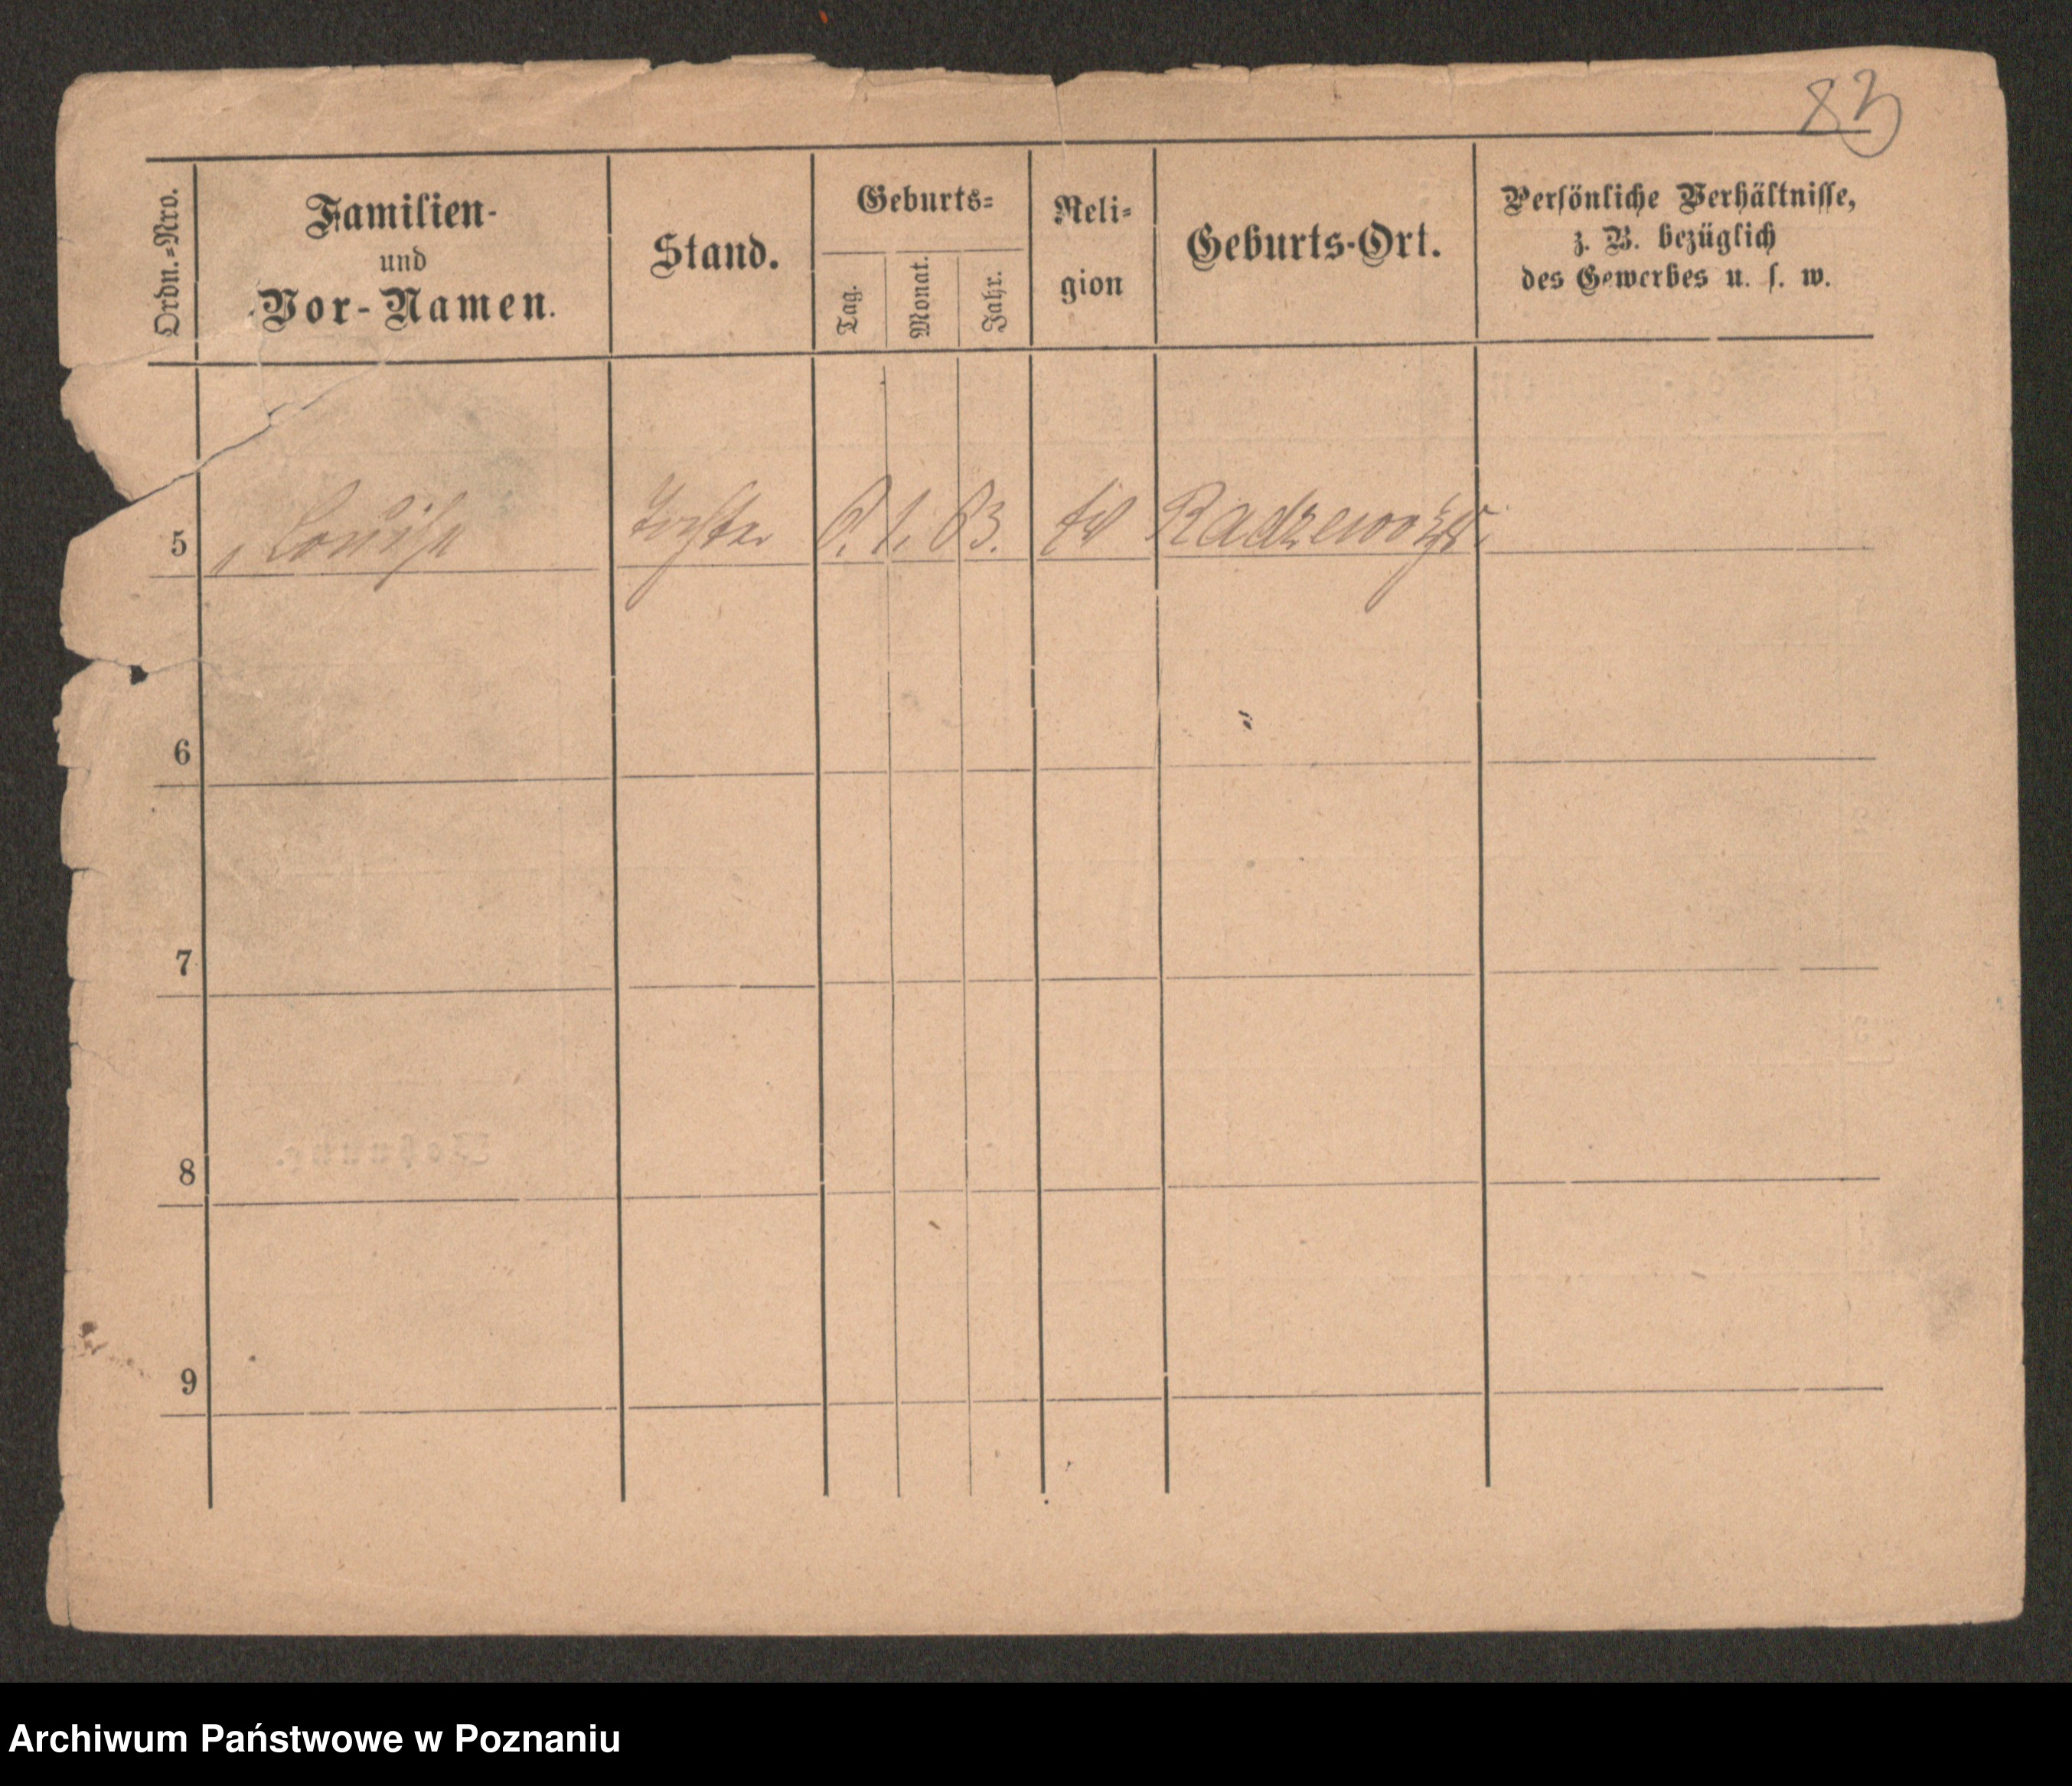 83
Ordn.=Nro.
Familien-
und
Vor-Namen.
Stand.
Geburts=
Tag.
Monat.
Jahr.
Reli=
gion
Geburts-Ort.
Persönliche Verhältnisse,
z. B. bezüglich
des Gewerbes u. s. w.
5 Louise Tochter 6. 1. 63. ev
6
7
8
9
Archiwum Państwowe w Poznaniu